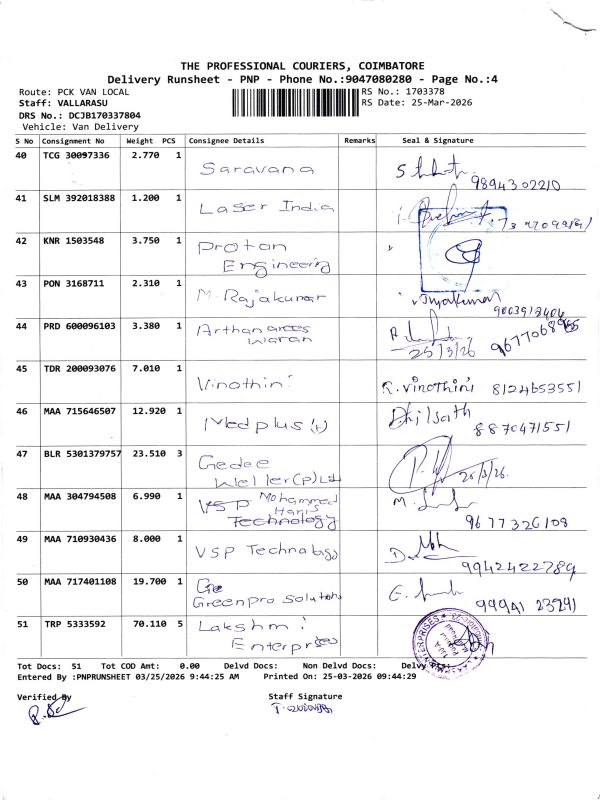 THE PROFESSIONAL COURIERS, COIMBATORE
Delivery Runsheet - PNP - Phone No.:9047080280 - Page No.:4
Route: PCK VAN LOCAL RS No.: 1703378
Staff: VALLARASU RS Date: 25-Mar-2026
DRS No.: DCJB170337804
Vehicle: Van Delivery
S No Consignment No Weight PCS Consignee Details Remarks Seal & Signature
40 TCG 30097336 2.770 1 Saravana 9894302210
41 SLM 392018388 1.200 1 Laser India
42 KNR 1503548 3.750 1 Protan
Engineering
43 PON 3168711 2.310 1 M. Rajakumar
44 PRD 600096103 3.380 1 Arthanarees
waran
25/3/26
45 TDR 200093076 7.010 1 Vinothini R. Vinothini 8124653551
46 MAA 715646507 12.920 1 Medplus (H) Dhilsath
8870471551
47 BLR 5301379757 23.510 3 Gedee
Weller(p)Ltd 25/3/26
48 MAA 304794508 6.990 1 VSP Mohammed
Haris
Technology
9677326108
49 MAA 710930436 8.000 1 VSP Technology
9942422789
50 MAA 717401108 19.700 1 Ge
Greenpro Solutions
99941 23291
51 TRP 5333592 70.110 5 Lakshmi
Enterprises
Tot Docs: 51 Tot COD Amt: 0.00 Delvd Docs: Non Delvd Docs: Delvy
Entered By :PNPRUNSHEET 03/25/2026 9:44:25 AM Printed On: 25-03-2026 09:44:29
Verified By Staff Signature